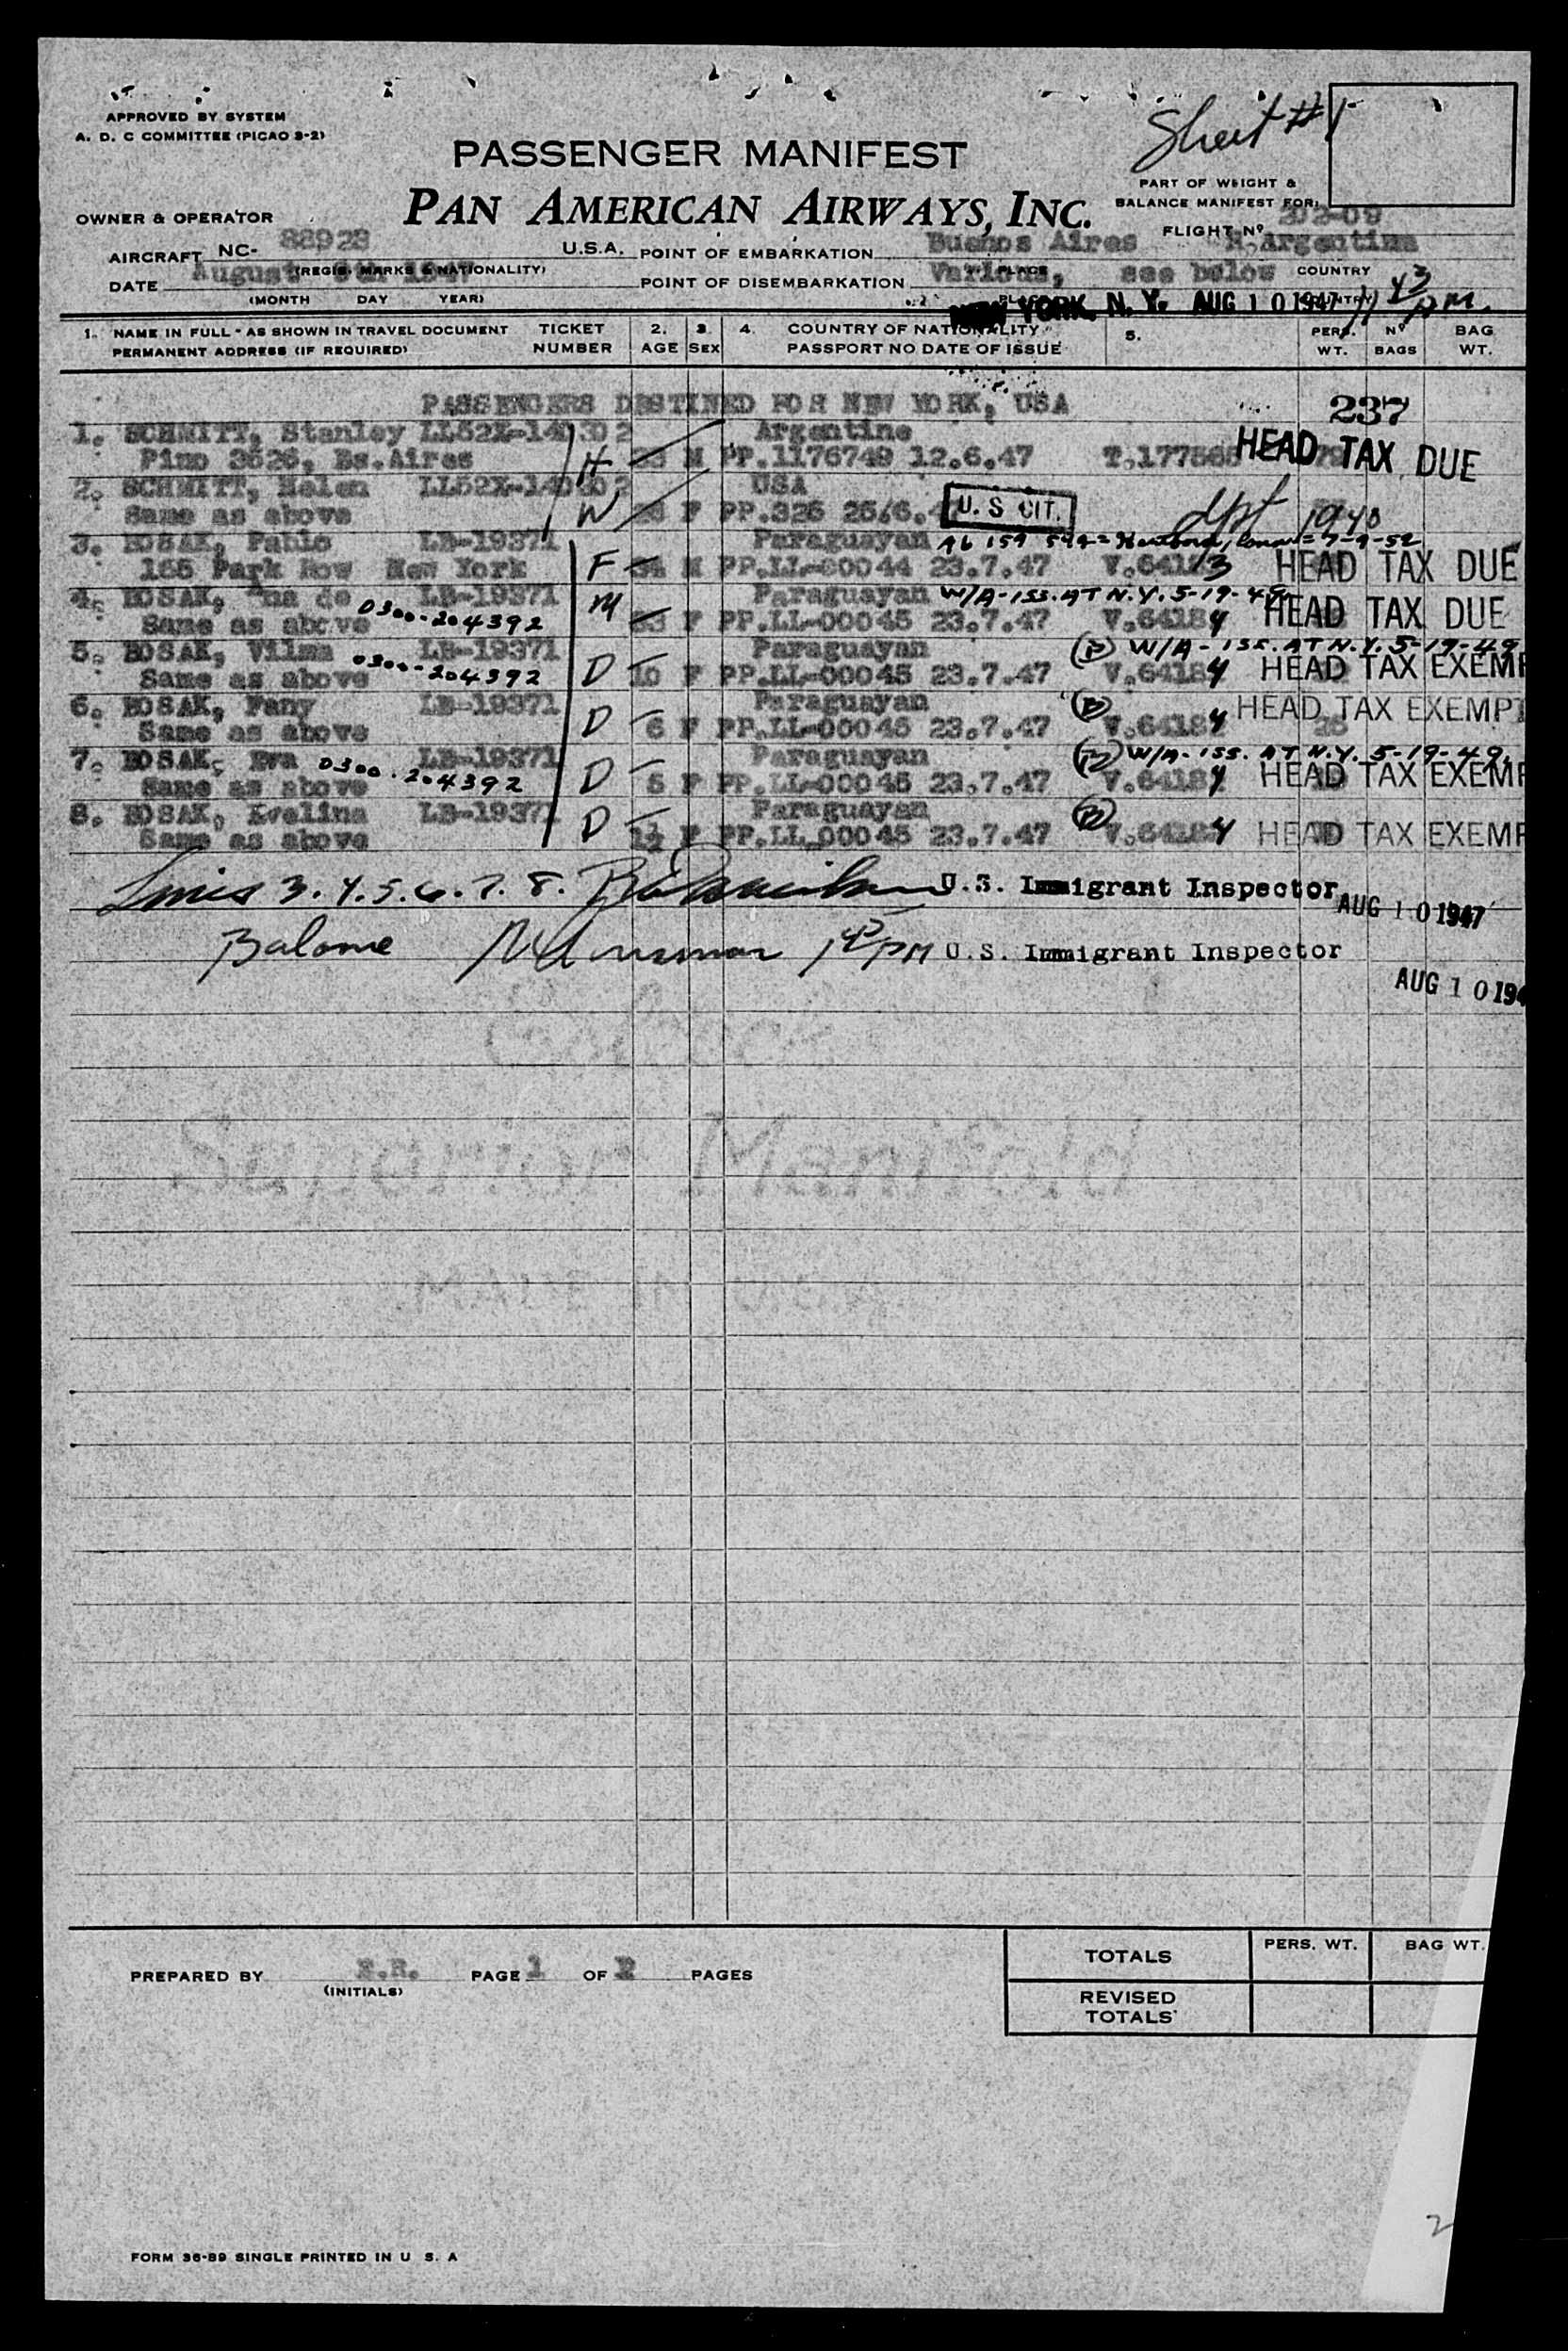 APPROVED BY SYSTEM
A. D. C COMMITTEE (PICAO 3-2)
Sheet #1
PASSENGER MANIFEST
PAN AMERICAN AIRWAYS, INC.
PART OF WEIGHT &
BALANCE MANIFEST FOR:
OWNER & OPERATOR
FLIGHT Nº 202-09
AIRCRAFT NC- 88923 U.S.A. POINT OF EMBARKATION Buenos Aires R.Argentina
(REGIS. MARKS & NATIONALITY) PLACE COUNTRY
DATE August 1947 POINT OF DISEMBARKATION Various, see below
(MONTH DAY YEAR)
NEW YORK, N. Y. AUG 10 1947 11 43 PM.
1. NAME IN FULL - AS SHOWN IN TRAVEL DOCUMENT TICKET 2. 3. 4. COUNTRY OF NATIONALITY 5. PERS. Nº BAG
PERMANENT ADDRESS (IF REQUIRED) NUMBER AGE SEX PASSPORT NO DATE OF ISSUE WT. BAGS WT.
PASSENGERS DESTINED FOR NEW YORK, USA 237
1. SCHMITT, Stanley LL52X-140302 Argentine
Pino 3526, Bs.Aires H M PP.1176749 12.6.47 HEAD TAX DUE
2. SCHMITT, Helen LL52X-140302 USA
Same as above W F PP.326 U. S CIT. 1940
3. BOSAK, Pablo LB-19371 Paraguayan
165 Park Row New York F M PP.LL-00044 23.7.47 V.64183 HEAD TAX DUE
4. BOSAK, Ana de LB-19371 Paraguayan W/A-ISS.AT N.Y. 5-19-49
Same as above 0300-204392 M F PP.LL-00045 23.7.47 V.64184 HEAD TAX DUE
5. BOSAK, Vilma LB-19371 Paraguayan W/A-ISS.AT N.Y. 5-19-49
Same as above 0300-204392 D 10 F PP.LL-00045 23.7.47 V.64184 HEAD TAX EXEMP
6. BOSAK, Fany LB-19371 Paraguayan
Same as above D 6 F PP.LL-00045 23.7.47 V.64184 HEAD TAX EXEMPT
7. BOSAK, Eva LB-19371 Paraguayan W/A-ISS. AT N.Y. 5-19-49.
Same as above 0300-204392 D 5 F PP.LL-00045 23.7.47 V.64184 HEAD TAX EXEMP
8. BOSAK, Evelina LB-19371 Paraguayan
Same as above D 1½ F PP.LL-00045 23.7.47 V.64184 HEAD TAX EXEMP
3. 4. 5. 6. 7. 8. U.S. Immigrant Inspector AUG 10 1947
PM U.S. Immigrant Inspector
AUG 10 194
Superior Manifold
MADE IN U.S.A.
TOTALS PERS. WT. BAG WT.
PREPARED BY PAGE 1 OF 2 PAGES
(INITIALS)
REVISED
TOTALS
2
FORM 36-89 SINGLE PRINTED IN U S. A